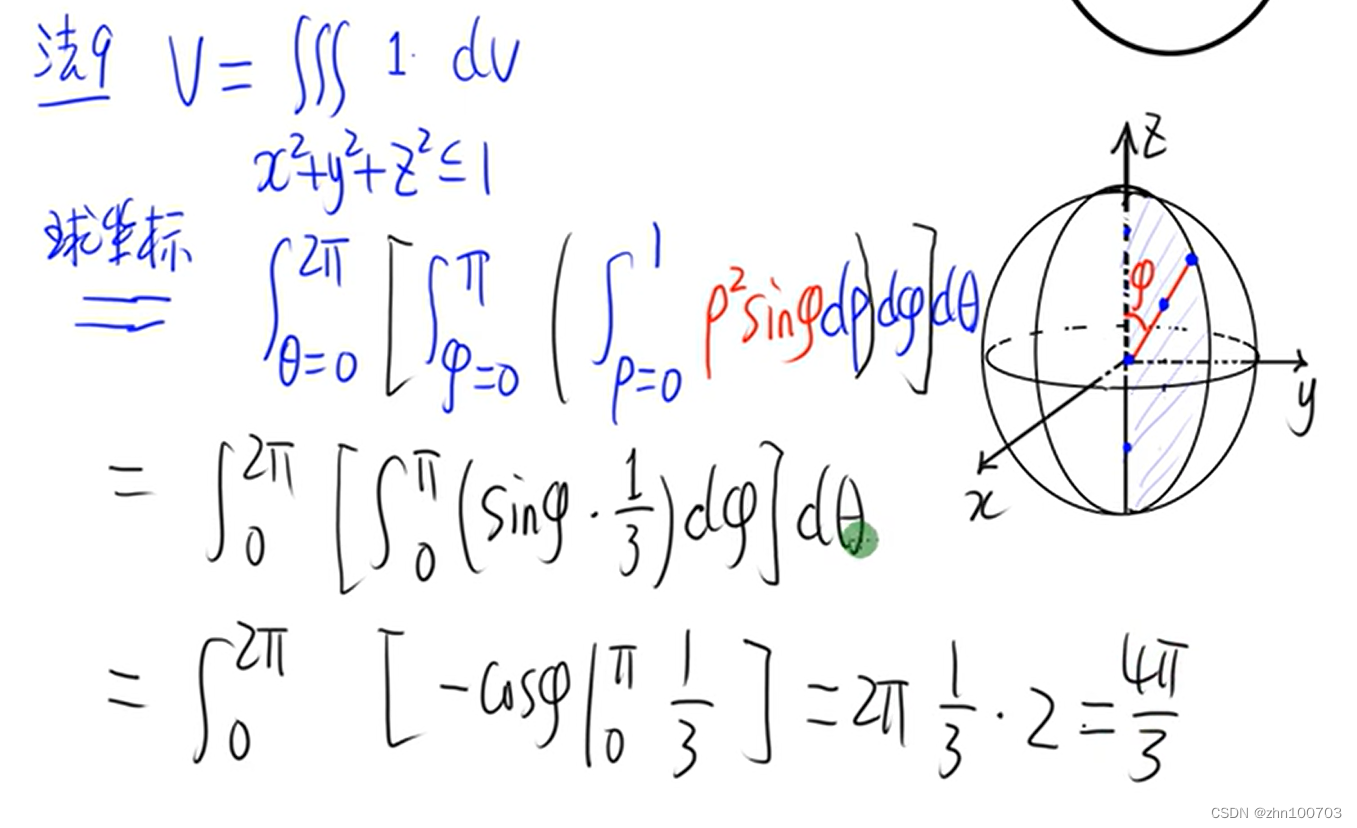 法9 V = ∭ 1· dv
x²+y²+z²≤1
球坐标
= ∫_{θ=0}^{2π} [ ∫_{φ=0}^{π} ( ∫_{ρ=0}^{1} ρ²sinφdρ)dφ]dθ
= ∫_0^{2π} [ ∫_0^π (sinφ · 1/3) dφ] dθ
= ∫_0^{2π} [ -cosφ|_0^π 1/3 ] = 2π 1/3 · 2 = 4π/3
z
φ
y
x
CSDN @zhn100703